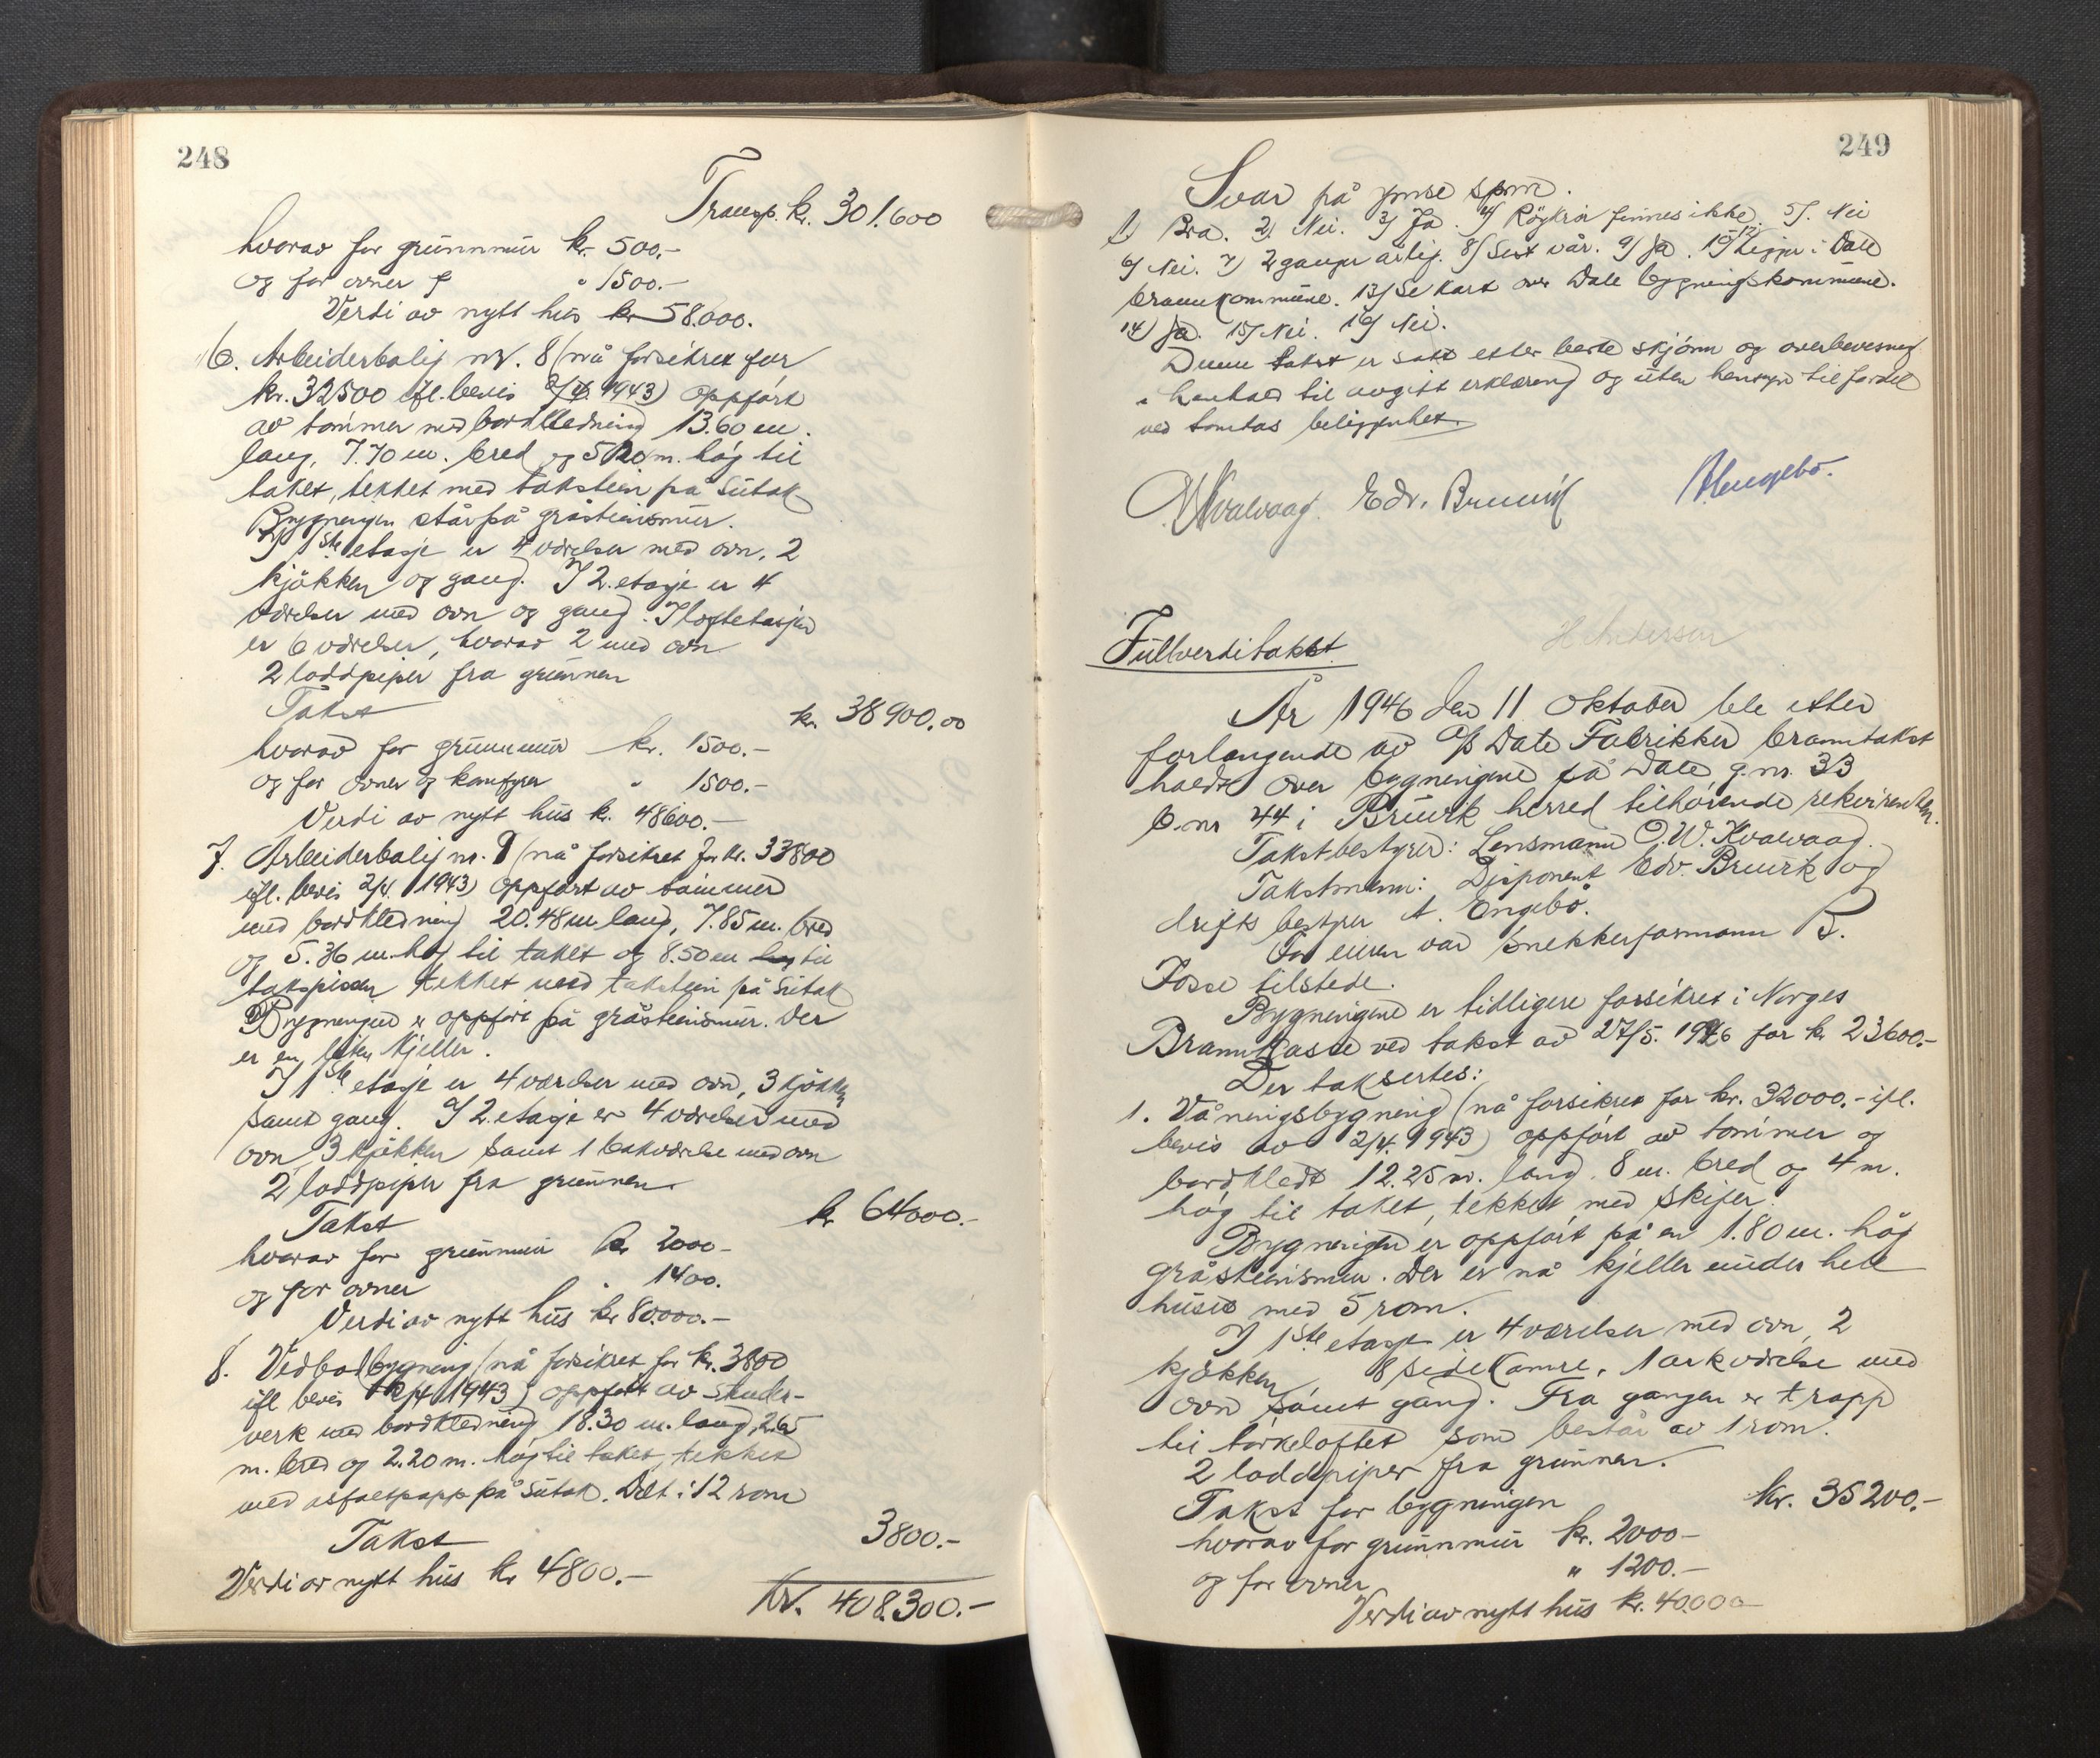 248
Transp. kr. 301.600
hvorav for grunnmur kr. 500.-
og for ovner " 1500.-
Verdi av nytt hus kr 58.000.
6. Arbeiderbolig nr. 8 (nå forsikret for
kr. 32500 ifl. bevis 2/4 1943) oppført
av tømmer med bordkledning 13.60 m.
lang, 7.70 m. bred og 5.20 m. høg til
taket, tekket med takstein på sutak
Bygningen står på gråsteinsmur.
I 1ste etasje er 4 værelser med ovn, 2
kjøkken og gang. I 2. etasje er 4
værelser med ovn og gang. I loftetasjen
er 6 værelser, hvorav 2 med ovn
2 loddpiper fra grunnen
Takst kr. 38900.00
hvorav for grunnmur kr. 1500.-
og for ovner og komfyrer " 1500.-
Verdi av nytt hus kr. 48600.-
7. Arbeiderbolig nr. 9 (nå forsikret for kr. 33800
ifl. bevis 2/4 1943) oppført av tømmer
med bordkledning 20.48 m lang, 7.85 m. bred
og 5.36 m. høg til taket og 8.50 m høg til
takspissen tekket med takstein på sutak
Bygningen er oppført på gråsteinsmur. Der
er en liten kjeller.
I 1ste etasje er 4 værelser med ovn, 3 kjøkken
samt gang. I 2. etasje er 4 værelser med
ovn 3 kjøkken samt 1 bakværelse med ovn
2 loddpiper fra grunnen.
Takst kr 64000.-
hvorav for grunnmur kr 2000-
og for ovner " 1400.
Verdi av nytt hus kr 80.000.-
8. Vedbodbygning (nå forsikret for kr. 3800
ifl bevis 2/4 1943) oppført av skuder-
verk med bordkledning, 18.30 m. lang, 2.65
m. bred og 2.20 m. høg til taket, tekket
med asfaltpapp på sutak. Delt i 12 rom
Takst 3800.-
Verdi av nytt hus kr 4800.-
Kr. 408.300.-
249
Svar på ymse spm.
1) Bra. 2) Nei. 3) Ja. 4) Røykrør finnes ikke. 5) Nei
6) Nei. 7) 2 ganger årlig. 8) Sist vår. 9) Ja. 10-12) Ligger i Dale
brannkommune. 13) Se kart over Dale bygningskommune.
14) Ja. 15) Nei. 16) Nei.
Denne takst er satt etter beste skjønn og overbevisning
i henhold til avgitt erklæring og uten hensyn til fordel
ved tomtas beliggenhet.
O.W. Kvalvaag. Edv. Bruvik A. Engebø.
H Andersen
Fullverditakst.
År 1946 den 11 oktober ble etter
forlangende av A/S Dale Fabrikker branntakst
holdt over bygningene på Dale g.nr. 33
b.nr 44 i Bruvik herred tilhørende rekvirenten.
Takstbestyrer: Lensmann O.W. Kvalvaag.
Takstmenn: Disponent Edv. Bruvik og
driftsbestyrer A. Engebø.
For eieren var snekkerformann B.
Fosse tilstede.
Bygningene er tidligere forsikret i Norges
Brannkasse ved takst av 27/5. 1926 for kr 23600.-
Der taksertes:
1. Våningsbygning (nå forsikret for kr. 32000.- ifl.
bevis av 2/4. 1943) oppført av tømmer og
bordkledt 12.25 m. lang, 8 m. bred og 4 m.
høg til taket, tekket med skifer.
Bygningen er oppført på en 1.80 m. høg
gråsteinsmur. Der er nå kjeller under hele
huset med 5 rom.
I 1ste etasje er 4 værelser med ovn, 2
kjøkken, 8 sidekamre, 1 arkværelse med
ovn samt gang. Fra gangen er trapp
til tørkeloftet som består av 1 rom.
2 loddpiper fra grunnen.
Takst for bygningen kr. 35200.-
hvorav for grunnmur kr. 2000-
og for ovner " 1200.-
Verdi av nytt hus kr. 40.000